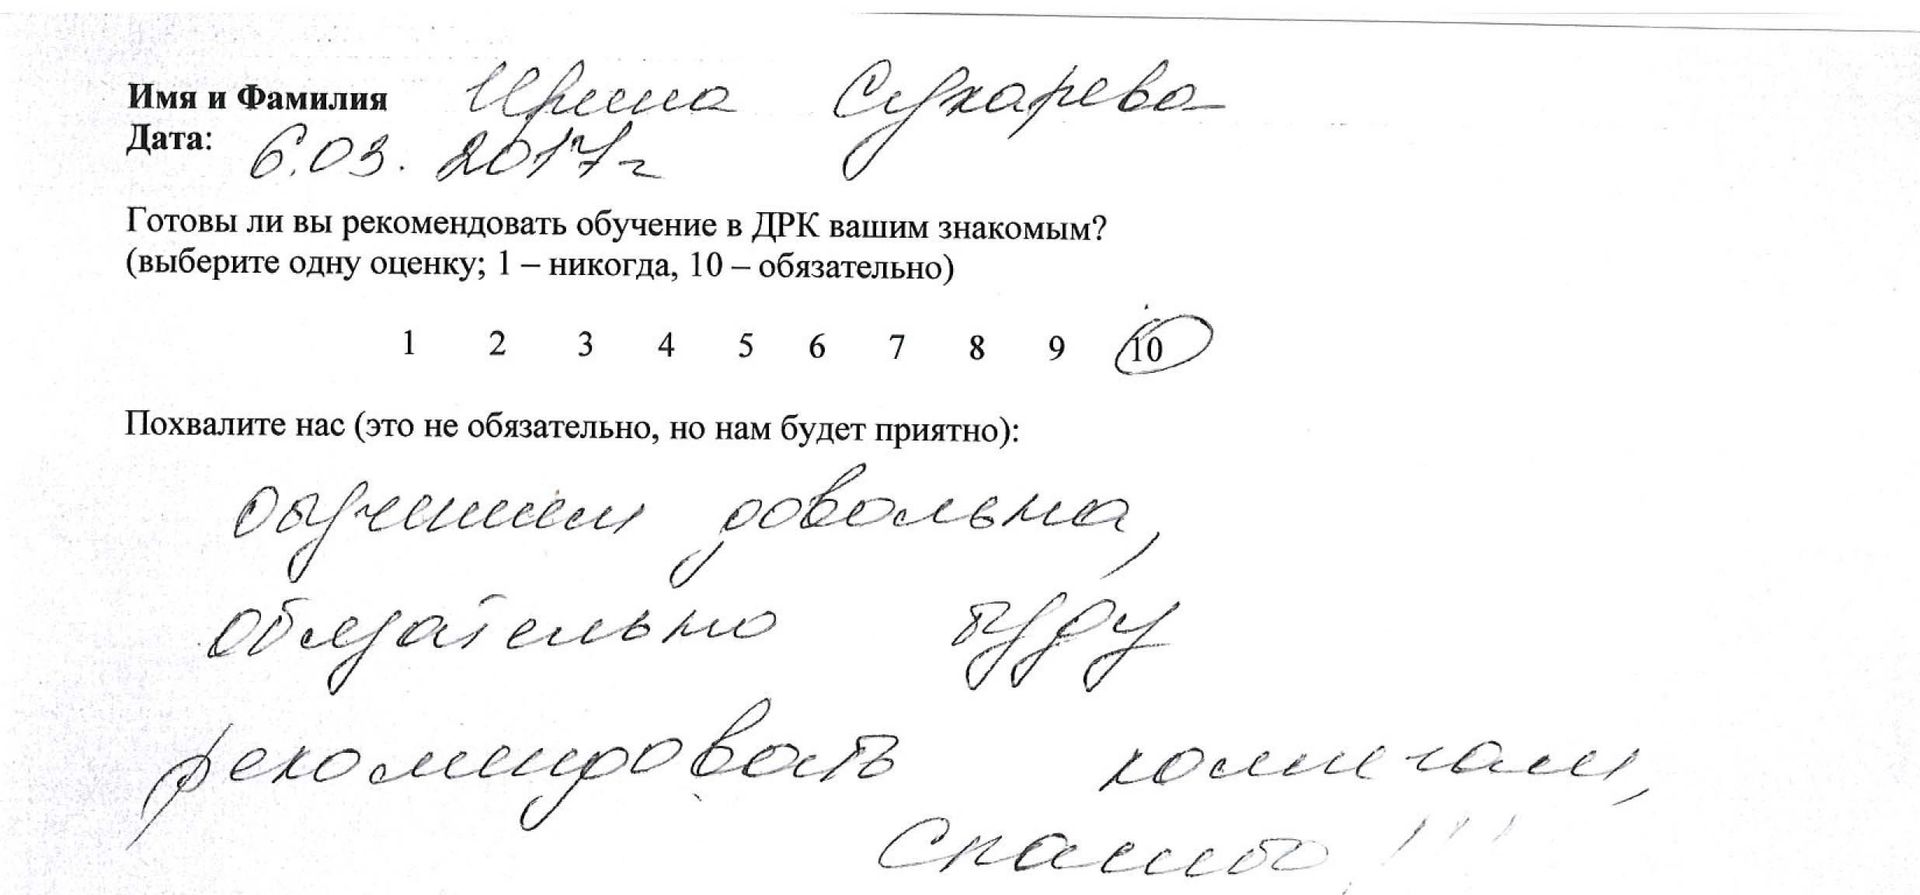 Имя и Фамилия Ирина Сухарева
Дата: 6.03.2017г
Готовы ли вы рекомендовать обучение в ДРК вашим знакомым?
(выберите одну оценку; 1 – никогда, 10 – обязательно)
1 2 3 4 5 6 7 8 9 10
Похвалите нас (это не обязательно, но нам будет приятно):
обучением довольна,
обязательно буду
рекомендовать коллегам,
Спасибо!!!